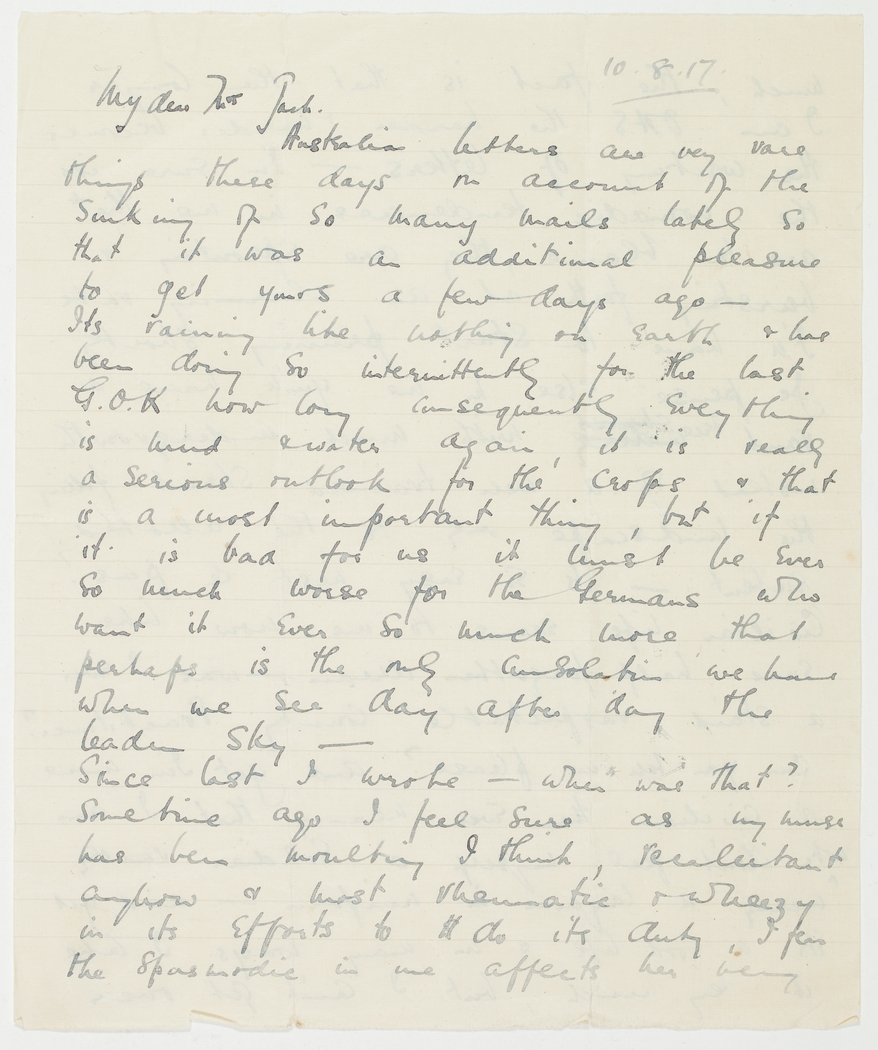 10.8.17.
My dear Mrs Jack.
Australian letters are very rare
things these days on account of the
sinking of so many mails lately so
that it was an additional pleasure
to get yours a few days ago —
Its raining like nothing on Earth & has
been doing so intermittently for the last
G.O.K how long consequently Everything
is mud & water again, it is really
a serious outlook for the crops & that
is a most important thing, but if
it is bad for us it must be Ever
so much worse for the Germans who
want it Ever so much more, that
perhaps is the only consolation we have
when we see day after day the
leaden sky —
Since last I wrote — when was that?
Sometime ago I feel sure as my muse
has been moulting I think, recalcitrant
anyhow & most rheumatic & wheezy
in its Efforts to do its duty, I fear
the spasmodic in me affects her being